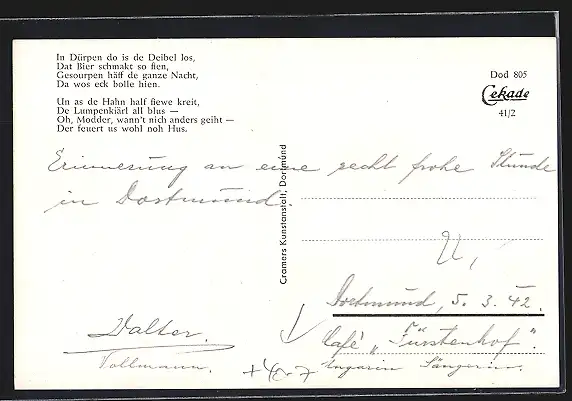 In Dürpen do is de Deibel los,
Dat Bier schmakt so fien,
Gesourpen häff de ganze Nacht,
Da wos eck bolle hien.
Un as de Hahn half fiewe kreit,
De Lumpenkiärl all blus —
Oh, Modder, wann't nich anders geiht —
Der feuert us wohl noh Hus.
Dod 805
Cekade
41/2
Cramers Kunstanstalt, Dortmund
Erinnerung an eine recht frohe Stunde
in Dortmund.
Dortmund, 5. 3. 42.
Café „Fürstenhof".
Ungarin Sängerin.
Walter.
Vollmann.